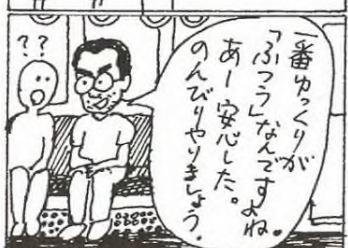 ??
一番ゆっくりが
「ふつう」なんですよね。
あー安心した。
のんびりやりましょう。